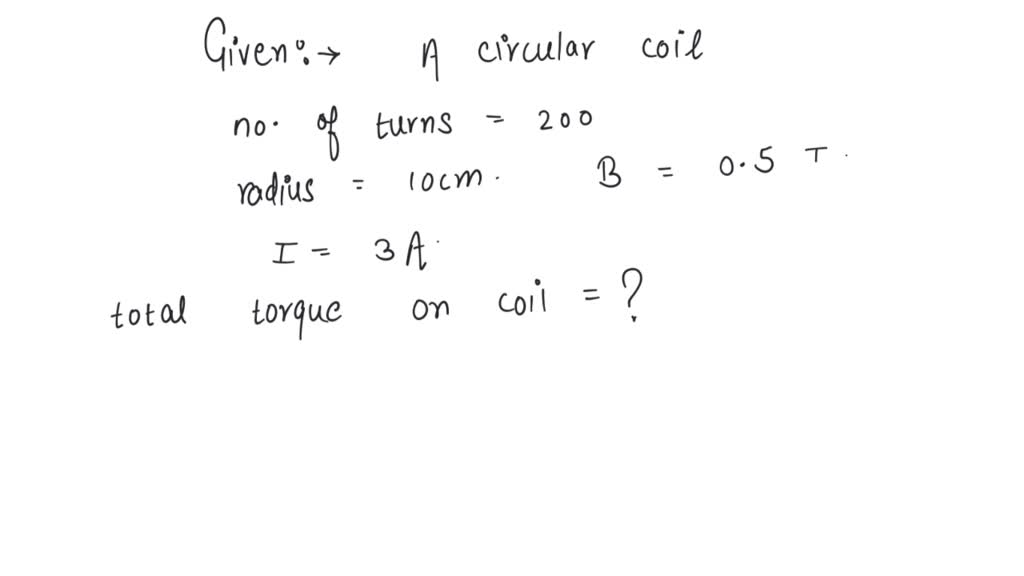 Given:→ A circular coil
no. of turns = 200
radius = 10cm. B = 0.5 T.
I = 3A.
total torque on coil = ?